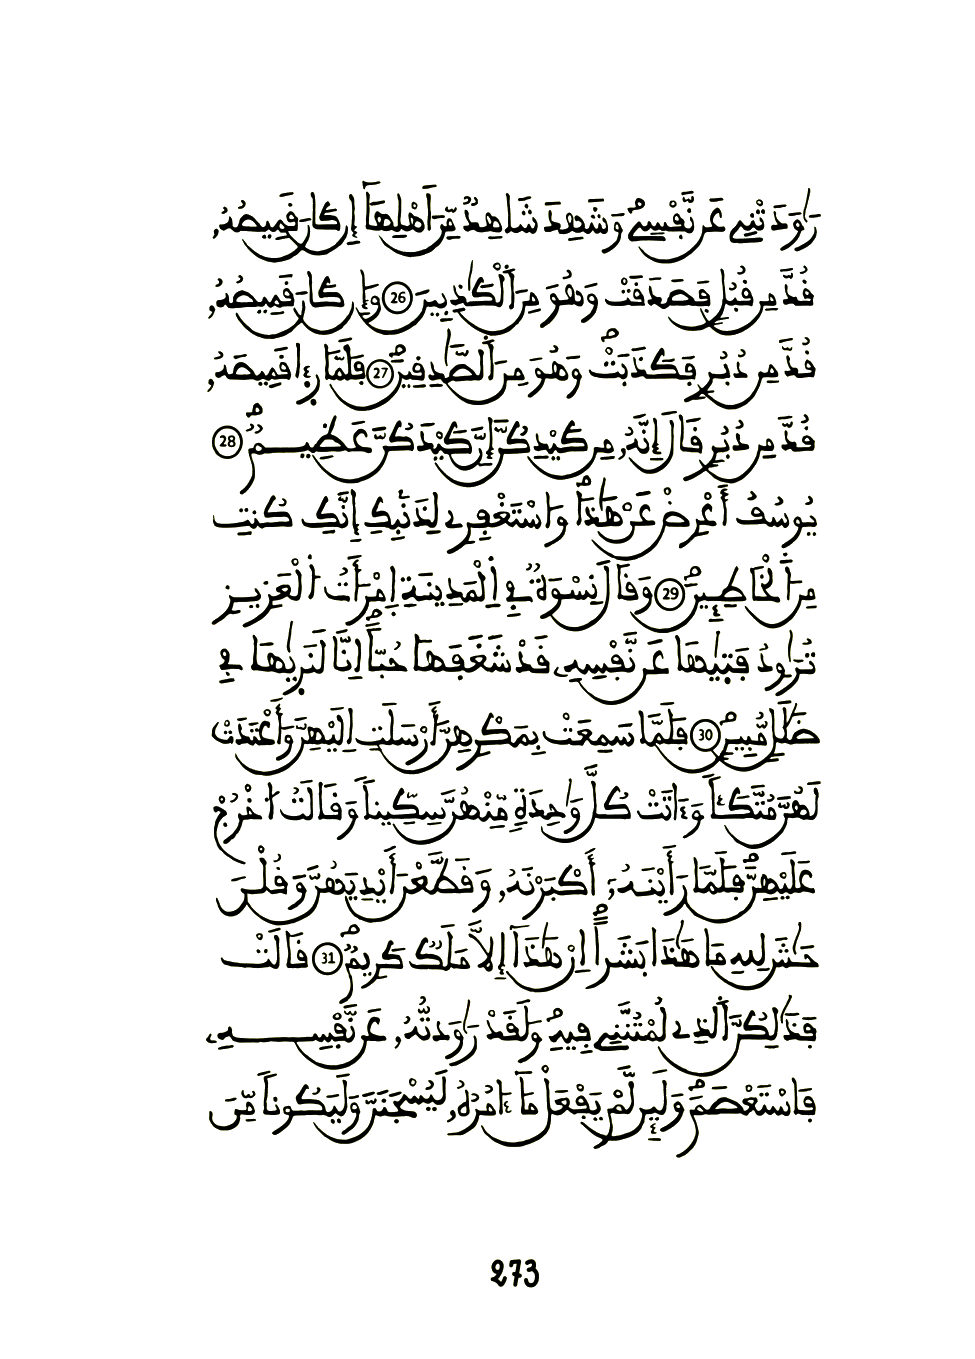 رَٰوَدَتْنِے عَن نَّفْسِےۖ وَشَهِدَ شَاهِدٞ مِّنَ اَهْلِهَآ إِن كَانَ قَمِيصُهُۥ
قُدَّ مِن قُبُلٖ فَصَدَقَتْ وَهُوَ مِنَ اَ۬لْكَٰذِبِينَ 26 وَإِن كَانَ قَمِيصُهُۥ
قُدَّ مِن دُبُرٖ فَكَذَبَتْۖ وَهُوَ مِنَ اَ۬لصَّٰدِقِينَۖ 27 فَلَمَّا رَء۪ا قَمِيصَهُۥ
قُدَّ مِن دُبُرٖ قَالَ إِنَّهُۥ مِن كَيْدِكُنَّ إِنَّ كَيْدَكُنَّ عَظِيمٞۖ 28
يُوسُفُ أَعْرِضْ عَنْ هَٰذَاۖ وَاسْتَغْفِرِے لِذَنۢبِكِ إِنَّكِ كُنتِ
مِنَ اَ۬لْخَاطِـِٕينَۖ 29 وَقَالَ نِسْوَةٞ فِے اِ۬لْمَدِينَةِ اِ۪مْرَأَتُ اُ۬لْعَزِيزِ
تُرَٰوِدُ فَتَىٰهَا عَن نَّفْسِهِۦ قَدْ شَغَفَهَا حُبّاًۖ اِنَّا لَنَر۪ىٰهَا فِے
ضَلَٰلٖ مُّبِينٖۖ 30 فَلَمَّا سَمِعَتْ بِمَكْرِهِنَّ أَرْسَلَتِ اِلَيْهِنَّ وَأَعْتَدَتْ
لَهُنَّ مُتَّكَـٔاٗ وَءَاتَتْ كُلَّ وَٰحِدَةٖ مِّنْهُنَّ سِكِّيناٗ وَقَالَتُ اُ۟خْرُجْ
عَلَيْهِنَّۖ فَلَمَّا رَأَيْنَهُۥٓ أَكْبَرْنَهُۥ وَقَطَّعْنَ أَيْدِيَهُنَّ وَقُلْنَ
حَٰشَ لِلهِ مَا هَٰذَا بَشَراًۖ اِنْ هَٰذَآ إِلَّا مَلَكٞ كَرِيمٞۖ 31 قَالَتْ
فَذَٰلِكُنَّ اَ۬لذِے لُمْتُنَّنِے فِيهِۖ وَلَقَدْ رَٰوَدتُّهُۥ عَن نَّفْسِهِۦ
فَاسْتَعْصَمَۖ وَلَئِن لَّمْ يَفْعَلْ مَآ ءَامُرُهُۥ لَيُسْجَنَنَّ وَلَيَكُوناٗ مِّنَ
273